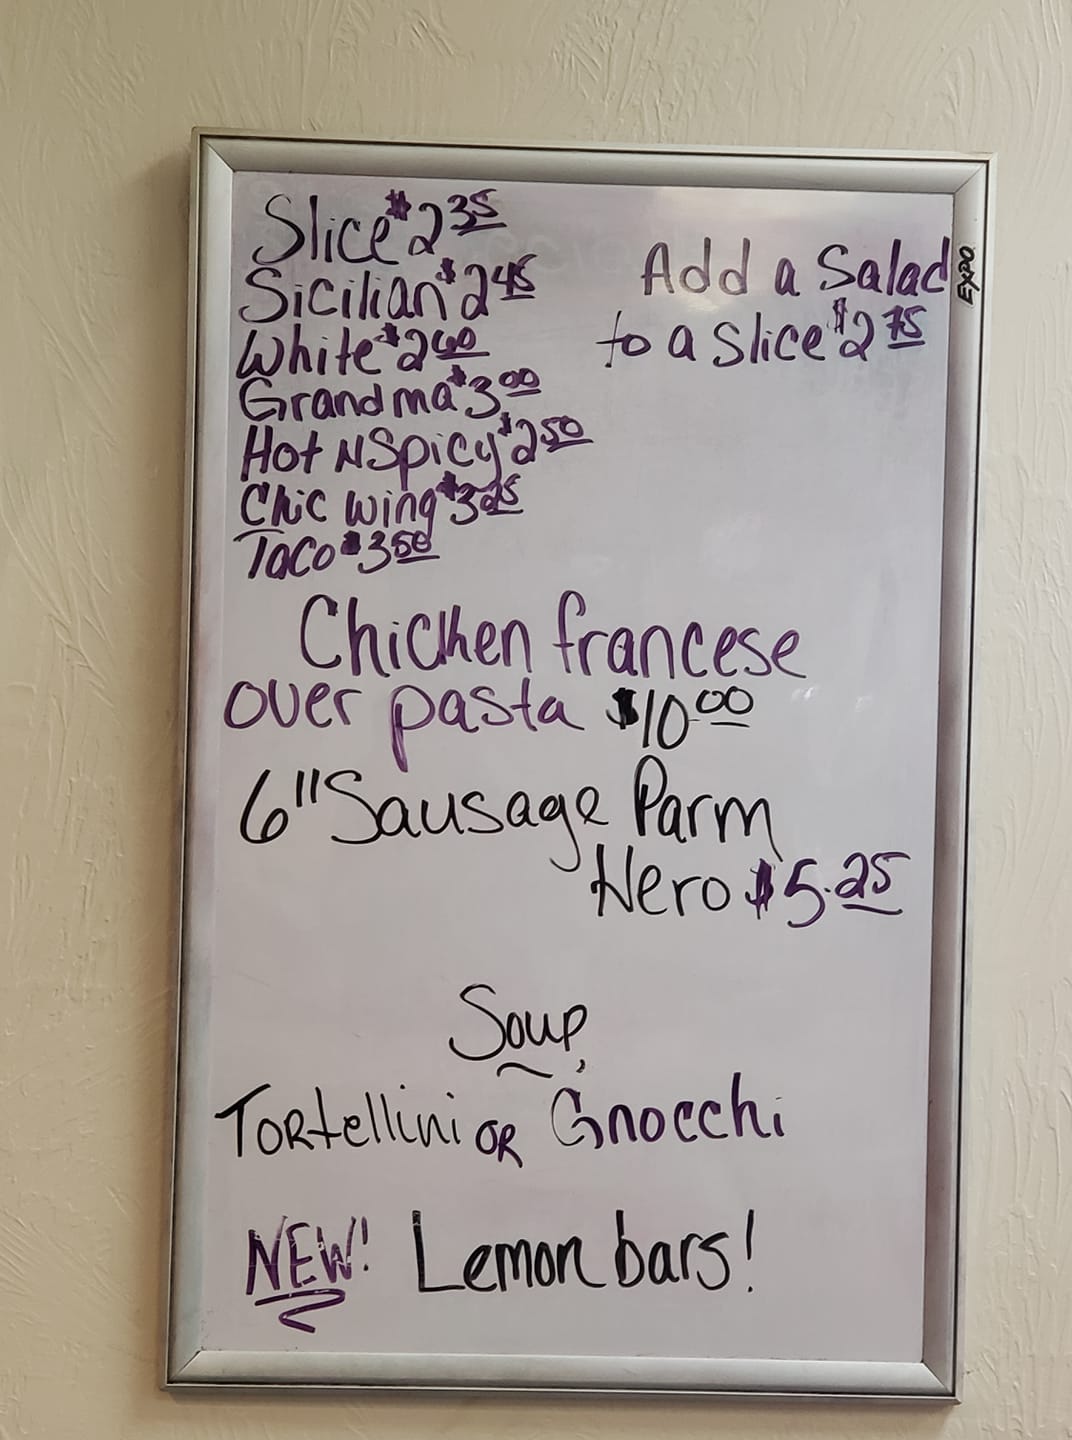 Slice $2 35
Sicilian $2 45
White $2 60
Grandma $3 00
Hot N Spicy $2 50
Chic wing $3 25
Taco $3 50
Add a Salad
to a slice $2 75
EXPO
Chicken francese
over pasta $10 00
6" Sausage Parm
Hero $5.25
Soup
Tortellini OR Gnocchi
NEW! Lemon bars!